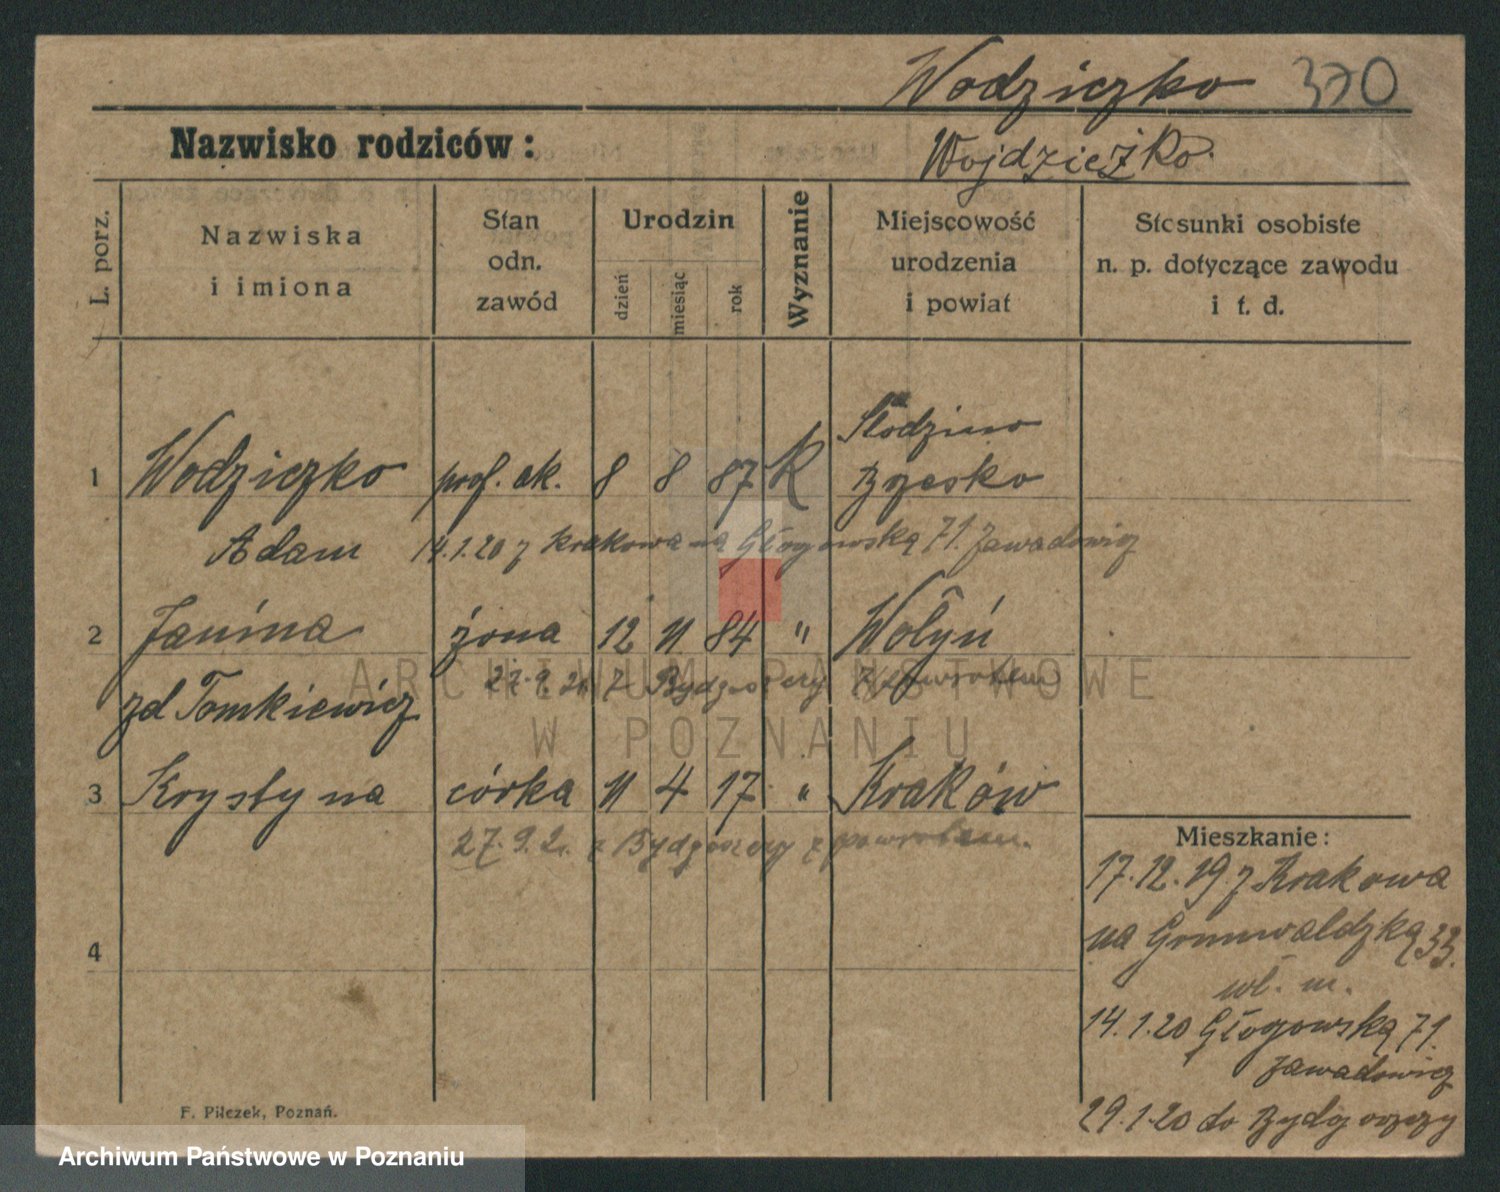 Wodziczko 370
Nazwisko rodziców: Wojdziczko.
L. porz.
Nazwiska
i imiona
Stan
odn.
zawód
Urodzin
dzień
miesiąc
rok
Wyznanie
Miejscowość
urodzenia
i powiat
Stosunki osobiste
n. p. dotyczące zawodu
i t. d.
1 Wodziczko prof. ak. 8 8 87 K
Brzesko
Adam 14.1.20 z Krakowa na Głogowską 71. Zawadowicz
2 Janina żona 12 11 84 " Wołyń
27.9.21 z Bydgoszczy z powrotem
zd Tomkiewicz
3 Krystyna córka 11 4 17 " Kraków
27.9.21 z Bydgoszczy z powrotem.
4
Mieszkanie:
17.12.19 z Krakowa
na Grunwaldzką 33.
wł. m.
14.1.20 Głogowską 71.
Zawadowicz
29.1.20 do Bydgoszczy
F. Pilczek, Poznań.
ARCHIWUM PAŃSTWOWE
W POZNANIU
Archiwum Państwowe w Poznaniu